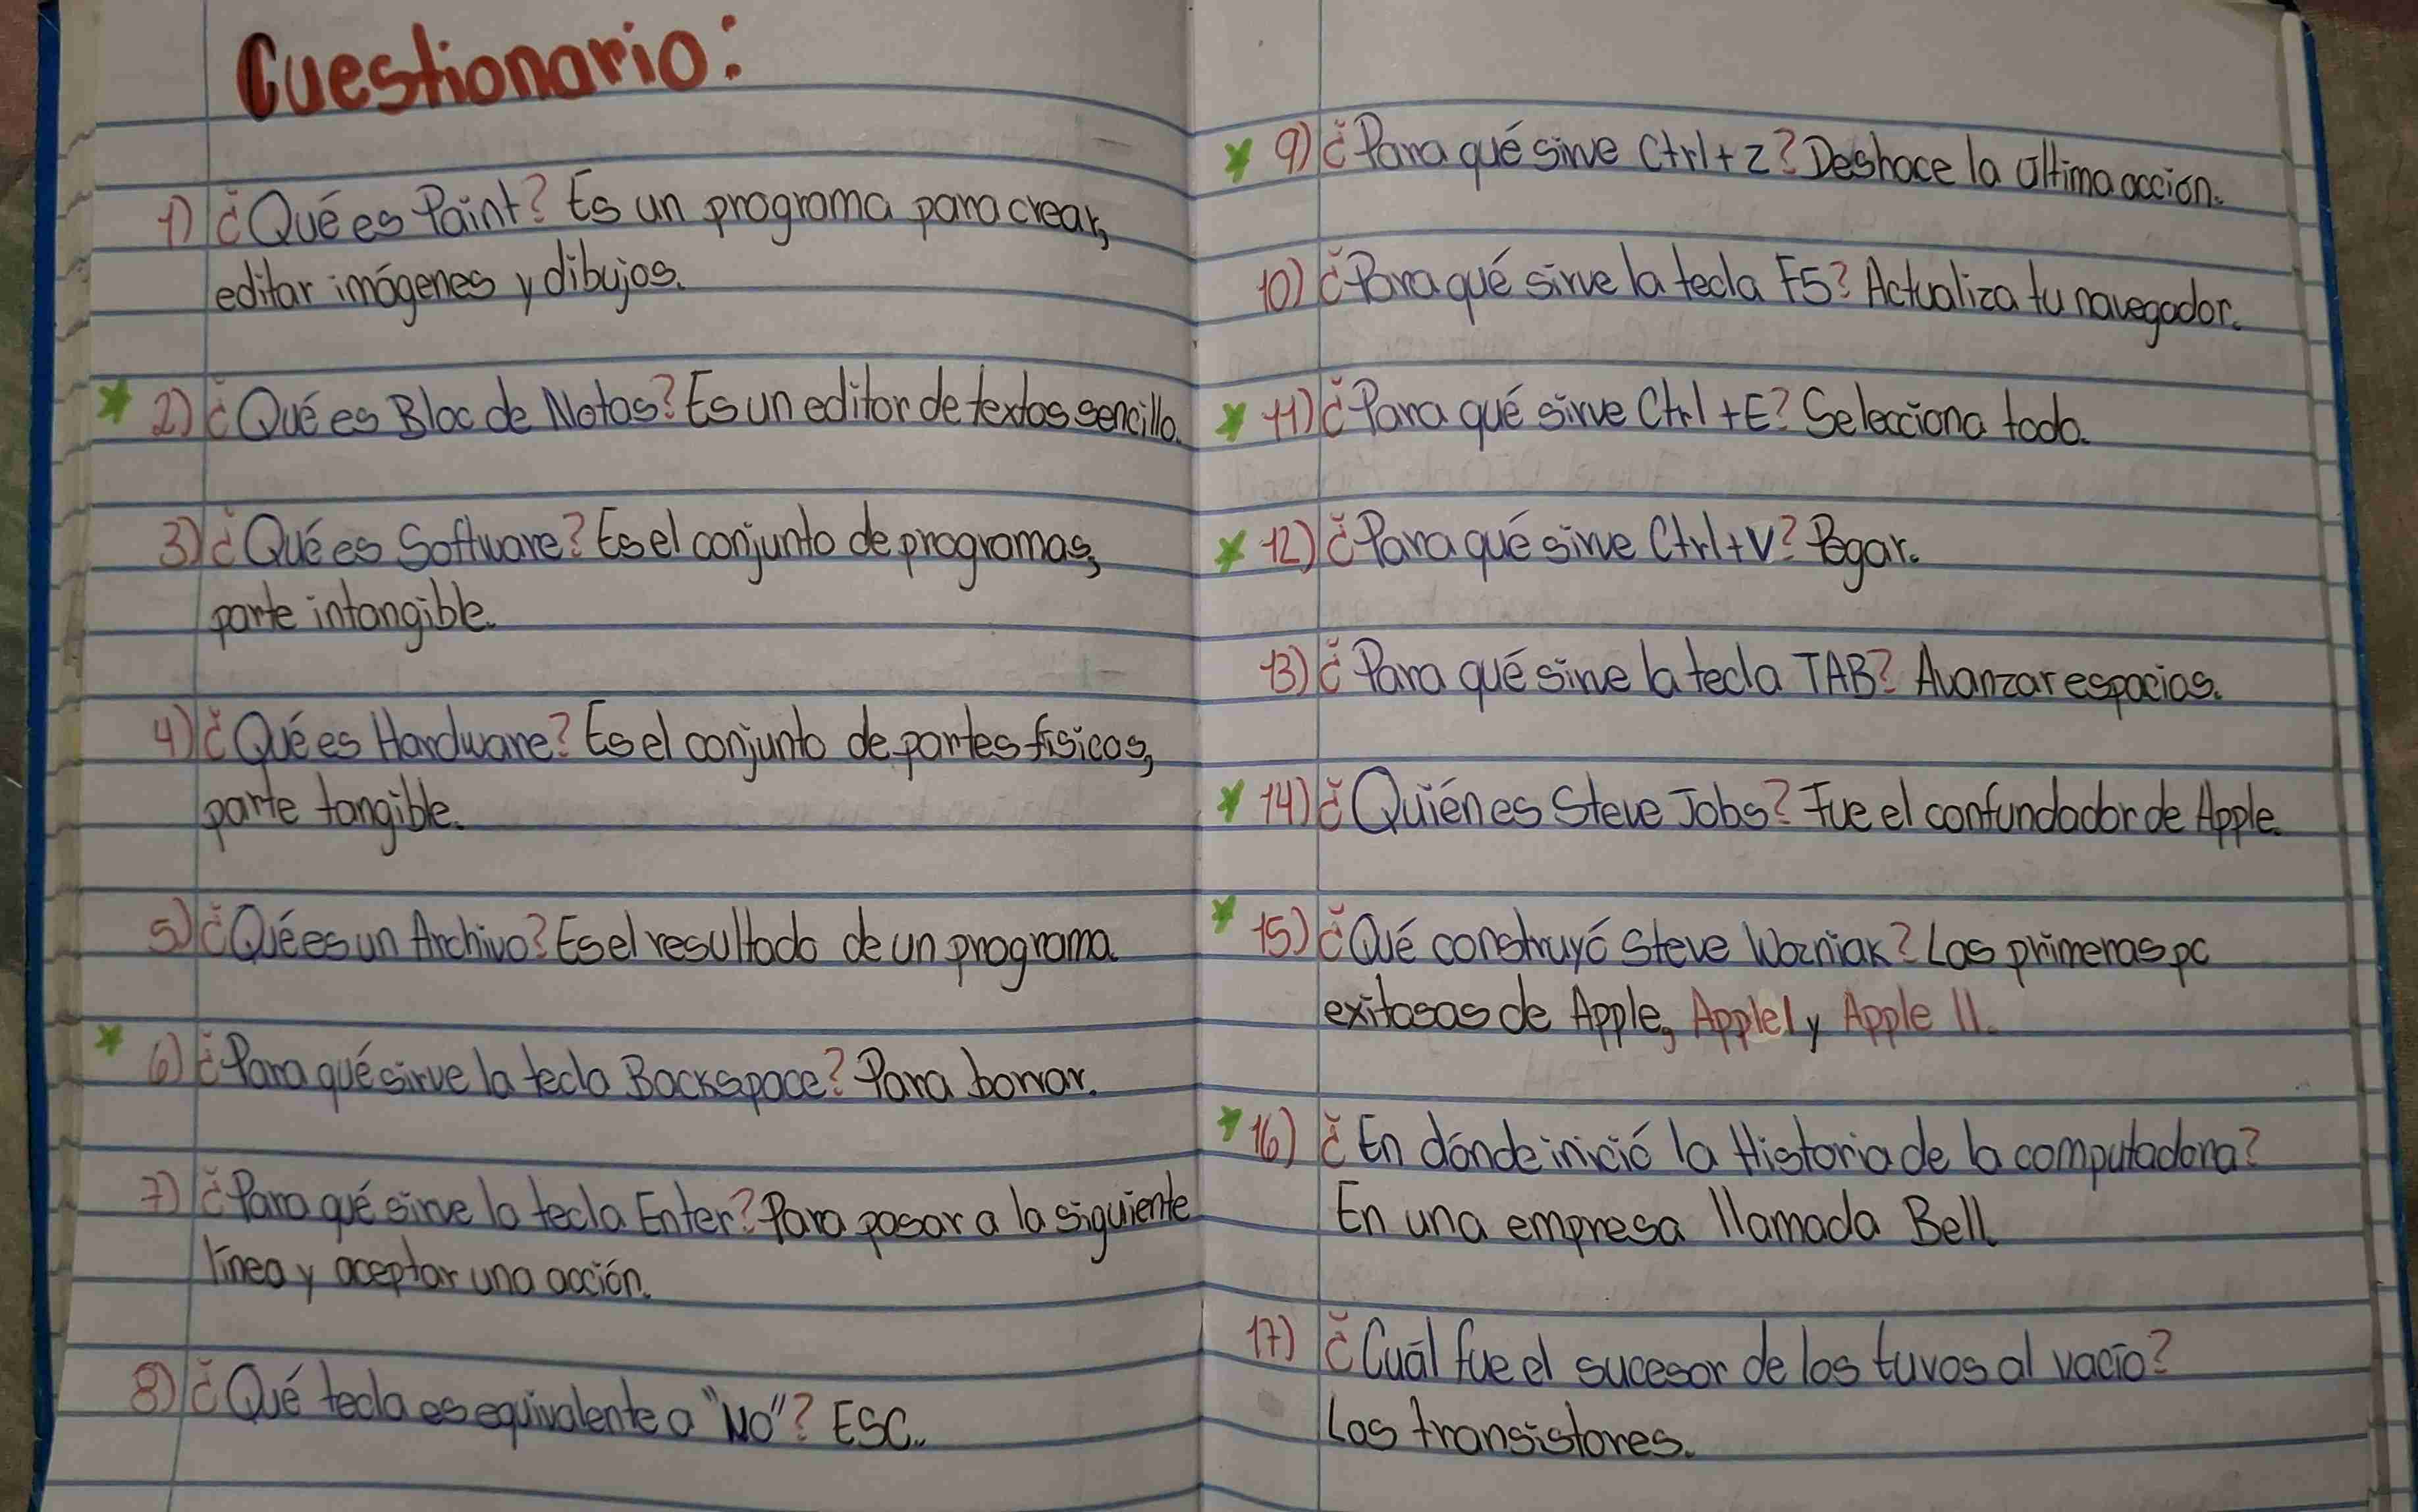 Cuestionario:
1) ¿Qué es Paint? Es un programa para crear,
editar imágenes y dibujos.
2) ¿Qué es Bloc de Notas? Es un editor de textos sencillo.
3) ¿Qué es Software? Es el conjunto de programas,
parte intangible.
4) ¿Qué es Hardware? Es el conjunto de partes físicas,
parte tangible.
5) ¿Qué es un Archivo? Es el resultado de un programa
6) ¿Para qué sirve la tecla Backspace? Para borrar.
7) ¿Para qué sirve la tecla Enter? Para pasar a la siguiente
línea y aceptar una acción.
8) ¿Qué tecla es equivalente a "NO"? ESC.
9) ¿Para qué sirve Ctrl+Z? Deshace la última acción.
10) ¿Para qué sirve la tecla F5? Actualiza tu navegador.
11) ¿Para qué sirve Ctrl+E? Selecciona todo.
12) ¿Para qué sirve Ctrl+V? Pegar.
13) ¿Para qué sirve la tecla TAB? Avanzar espacios.
14) ¿Quién es Steve Jobs? Fue el confundador de Apple.
15) ¿Qué construyó Steve Wozniak? Las primeras pc
exitosas de Apple, Apple I y Apple II.
16) ¿En dónde inició la Historia de la computadora?
En una empresa llamada Bell.
17) ¿Cuál fue el sucesor de los tuvos al vacío?
Los transistores.